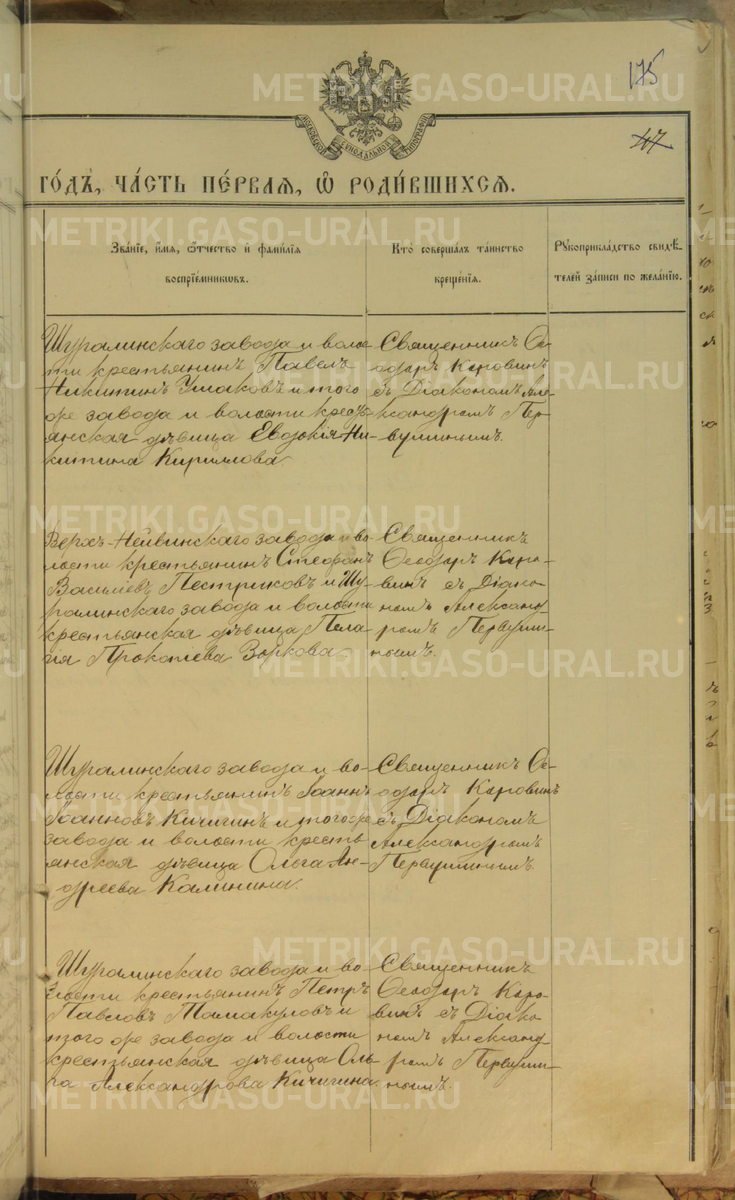 175
47
МОСКОВСКОЙ СѴНОДАЛЬНОЙ ТИПОГРАФІИ
ГО́ДЪ, ЧА́СТЬ ПЕ́РВАѦ, Ѽ РОДИ́ВШИХСѦ.
Зва́нїе, и́мѧ, ѻ҆́тчество и҆ фами́лїѧ
воспрїе́мниковъ.
Кто̀ соверша́лъ та́инство
креще́нїѧ.
Рꙋкоприкла́дство свидѣ́-
телей за́писи по жела́нїю.
Шуралинскаго завода и волос-
ти крестьянинъ Павелъ
Никитинъ Ушаковъ и того
же завода и волости кресть-
янская дѣвица Евдокія Ни-
китина Кириллова
Священникъ Ѳе-
одоръ Коровинъ
съ Діакономъ Але-
ксандромъ Пер-
вушинымъ.
Верхъ-Нейвинскаго завода и во-
лости крестьянинъ Стефанъ
Васильевъ Пестриковъ и Шу-
ралинскаго завода и волости
крестьянская дѣвица Пела-
гія Прокопьева Зоркова
Священникъ
Ѳеодоръ Коро-
винъ съ Діако-
номъ Александ-
ромъ Первуши-
нымъ.
Шуралинскаго завода и во-
лости крестьянинъ Іоаннъ
Іоанновъ Кичигинъ и того же
завода и волости кресть-
янская дѣвица Ольга Ан-
дреева Калинина.
Священникъ Ѳе-
одоръ Коровинъ
съ Діакономъ
Александромъ
Первушинымъ.
Шуралинскаго завода и во-
лости крестьянинъ Петръ
Павловъ Тамакуловъ и
того же завода и волости
крестьянская дѣвица Оль-
га Александрова Кичигина
Священникъ
Ѳеодоръ Коро-
винъ съ Діако-
номъ Александ-
ромъ Первуши-
нымъ.
METRIKI.GASO-URAL.RU